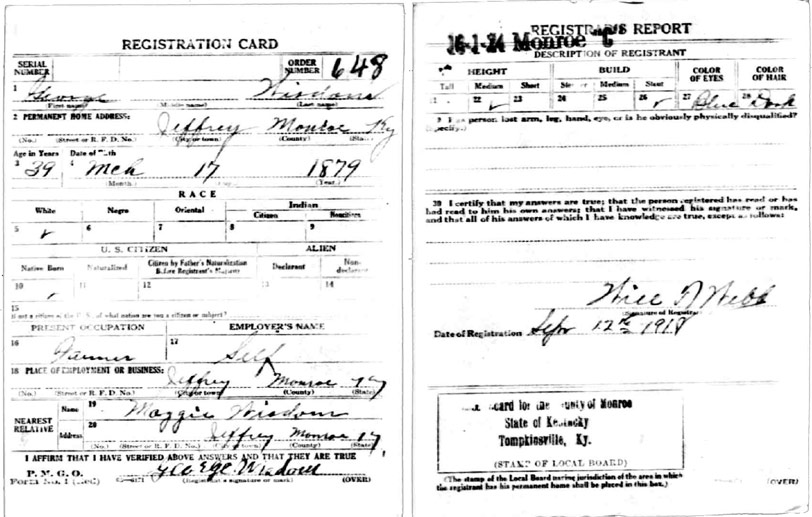 REGISTRATION CARD
SERIAL NUMBER
ORDER NUMBER 648
1 George Wisdom
(First name) (Middle name) (Last name)
2 PERMANENT HOME ADDRESS: Jeffrey Monroe Ky
(No.) (Street or R. F. D. No.) (City or town) (County) (State)
Age in Years Date of Birth
3 39 4 Mch 17 1879
(Month.) (Day.) (Year.)
RACE
White Negro Oriental Indian
Citizen Noncitizen
5 ✓ 6 7 8 9
U. S. CITIZEN ALIEN
Native Born Naturalized Citizen by Father's Naturalization Before Registrant's Majority Declarant Non-declarant
10 ✓ 11 12 13 14
15
If not a citizen of the U. S., of what nation are you a citizen or subject?
PRESENT OCCUPATION EMPLOYER'S NAME
16 Farmer 17 Self
18 PLACE OF EMPLOYMENT OR BUSINESS:
Jeffrey Monroe Ky
(No.) (Street or R. F. D. No.) (City or town) (County) (State)
NEAREST RELATIVE
Name 19 Maggie Wisdom
Address 20 Jeffrey Monroe Ky
(No.) (Street or R. F. D. No.) (City or town) (County) (State)
I AFFIRM THAT I HAVE VERIFIED ABOVE ANSWERS AND THAT THEY ARE TRUE
P. M. G. O.
Form No. 1 (Red) George Wisdom
(Registrant's signature or mark) (OVER)
REGISTRAR'S REPORT
16-1-24 Monroe C
DESCRIPTION OF REGISTRANT
HEIGHT BUILD COLOR OF EYES COLOR OF HAIR
Tall Medium Short Slender Medium Stout
21 22 ✓ 23 24 25 26 ✓ 27 Blue 28 Dark
29 Has person lost arm, leg, hand, eye, or is he obviously physically disqualified?
(Specify.)
30 I certify that my answers are true; that the person registered has read or has
had read to him his own answers; that I have witnessed his signature or mark,
and that all of his answers of which I have knowledge are true, except as follows:
Will N Webb
(Signature of Registrar)
Date of Registration Sept 12th 1918
Board for the County of Monroe
State of Kentucky
Tompkinsville, Ky.
(STAMP OF LOCAL BOARD)
(The stamp of the Local Board having jurisdiction of the area in which
the registrant has his permanent home shall be placed in this box.)
(OVER)